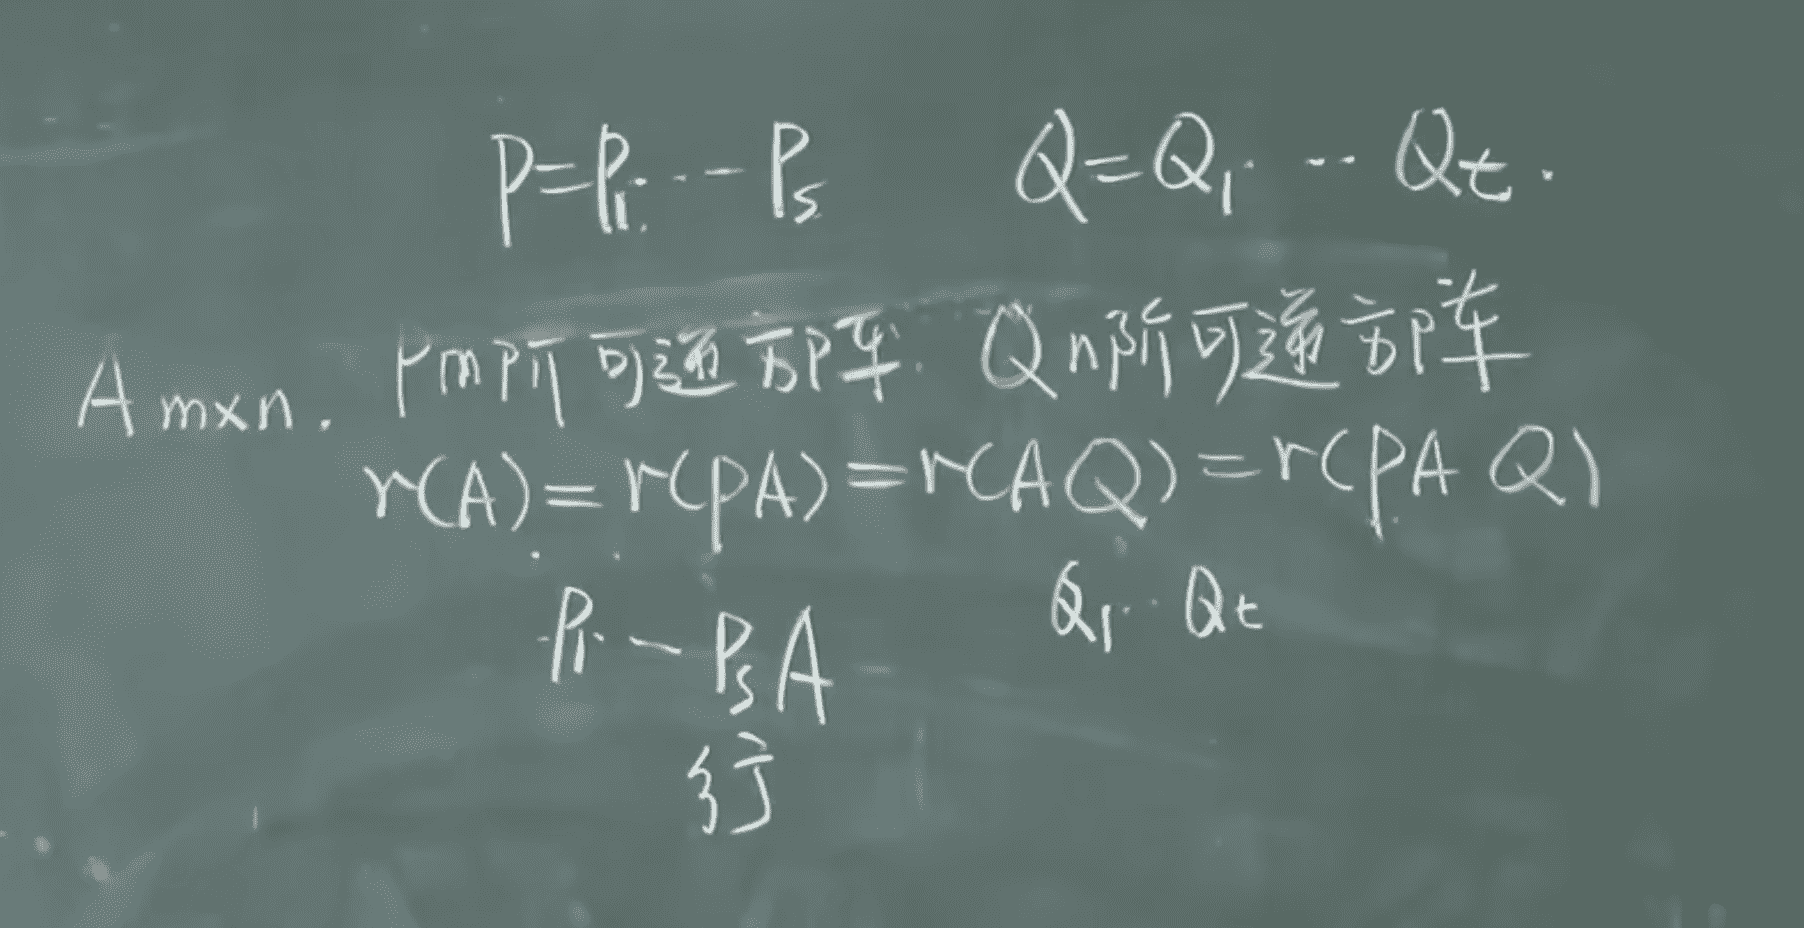 P=P₁…Pₛ Q=Q₁…Qₜ.
Aₘₓₙ. Pm阶可逆方阵. Qn阶可逆方阵
r(A)=r(PA)=r(AQ)=r(PAQ)
P₁…PₛA Q₁…Qₜ
行